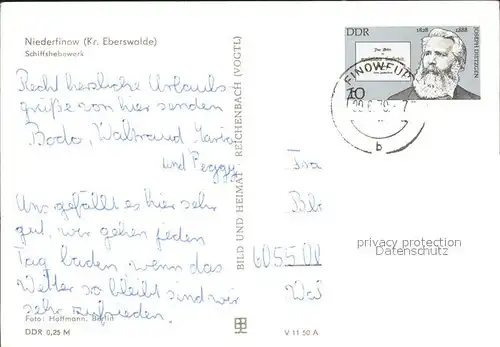 Niederfinow (Kr. Eberswalde)
Schiffshebewerk
Recht herzliche Urlaubs
grüße von hier senden
Bodo, Waltraud, Maria
und Peggy
Uns gefällt es hier sehr
gut, wir gehen jeden
Tag baden, wenn das
Wetter so bleibt sind wir
sehr zufrieden.
Foto: Hoffmann, Berlin
DDR 0,25 M
BILD UND HEIMAT REICHENBACH (VOGTL)
V 11 50 A
DDR
1828 1888
JOSEPH DIETZGEN
10
FINOWFURT
b
Fra
Blu
privacy protection
watermark